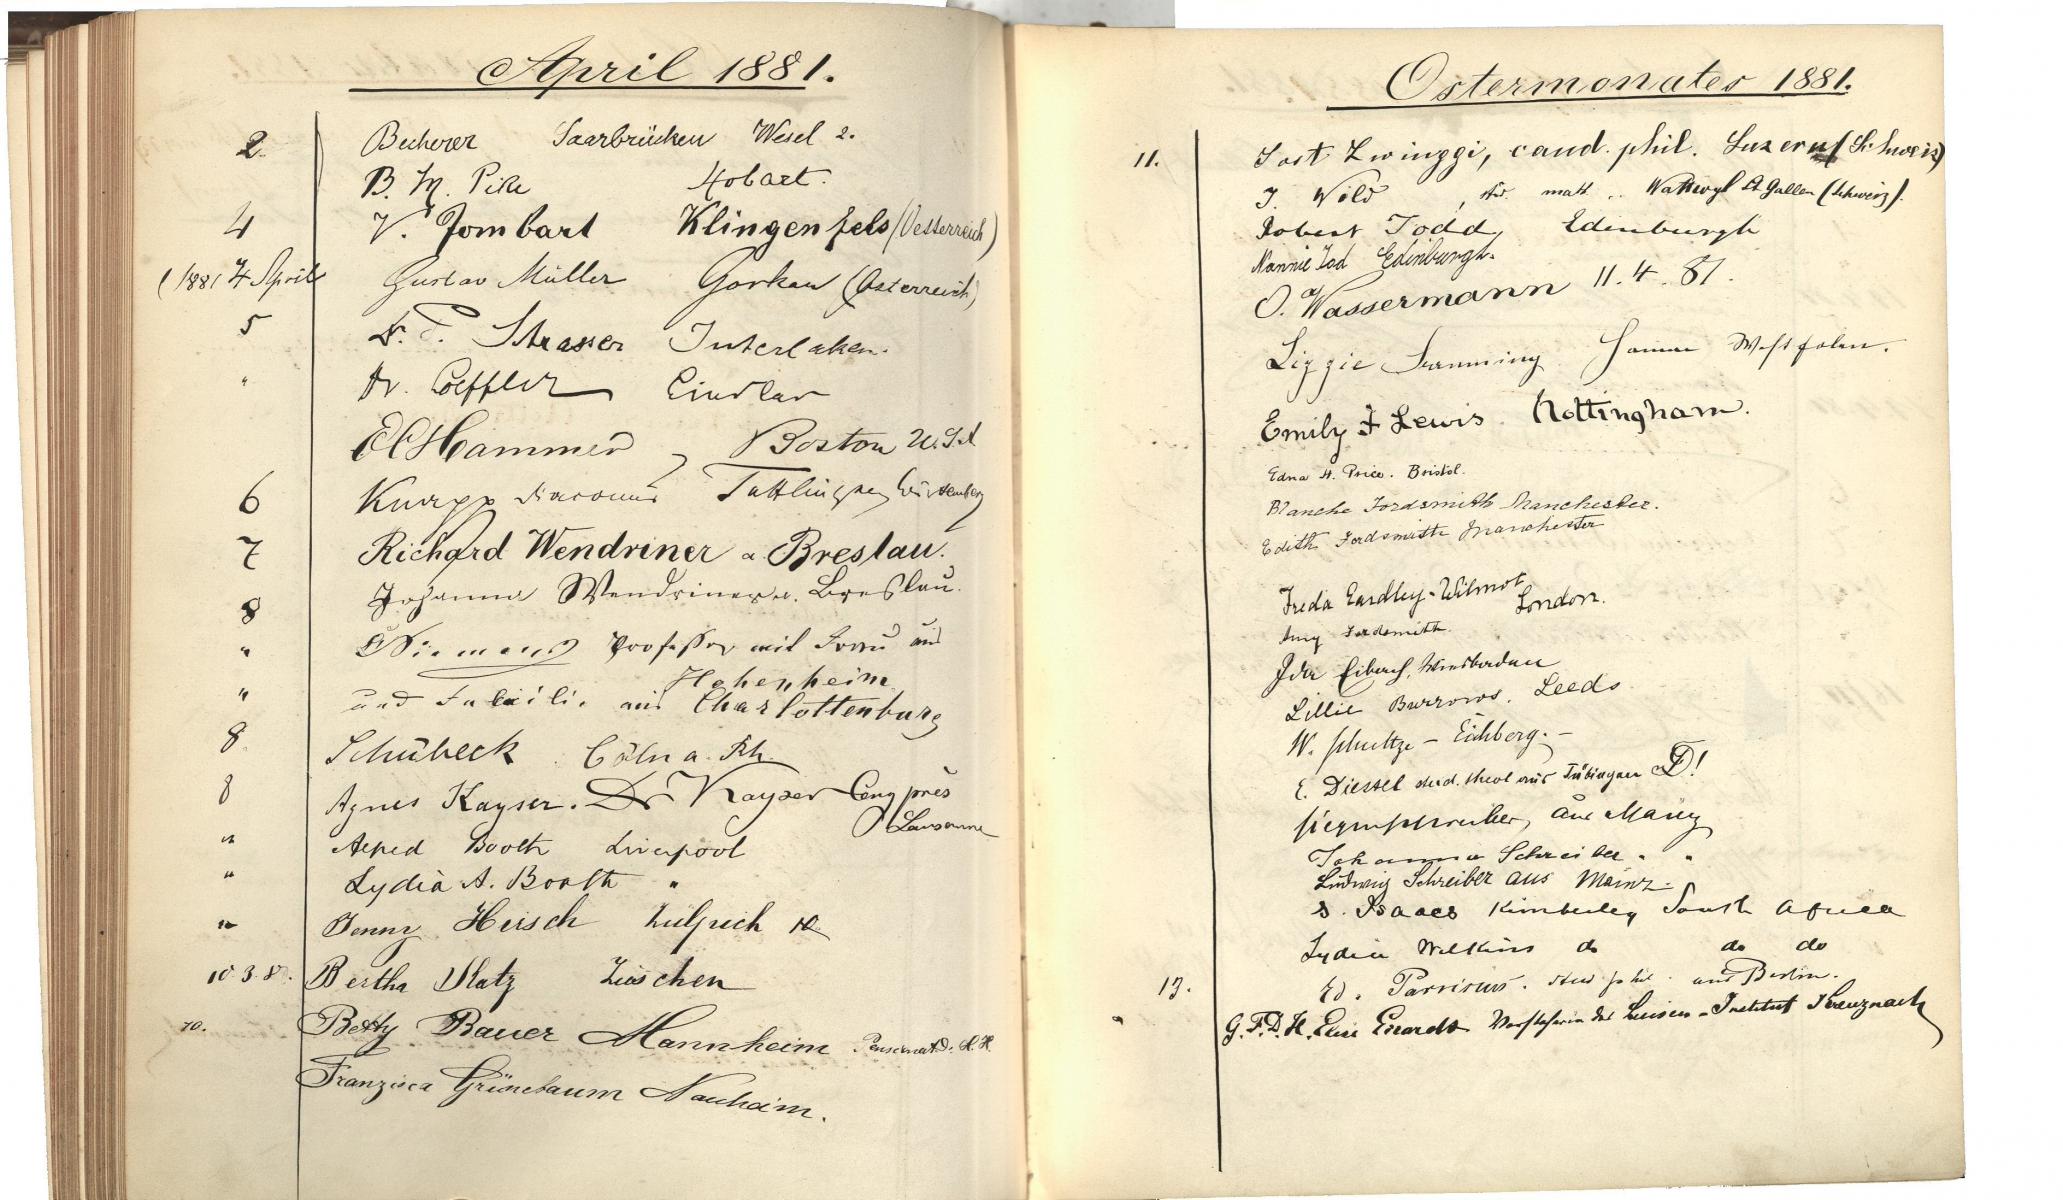 April 1881.
2 Becherer Saarbrücken Wesel 2.
B. M. Pike Hobart.
4 V. Jombart Klingenfels (Oesterreich)
(1881 4 April Gustav Müller Gorkau (Osterreich)
5 Strasser Interlaken.
" Dr.
Hammer, Boston U.S.A
6 Knapp Württemberg
7 Richard Wendriner a Breslau.
8 Johanna Wendriner a. Breslau.
" Professor mit Frau aus
Hohenheim
" und Familie aus Charlottenburg
8 Schübeck Cöln a. Rh.
8 Agnes Kayser. Dr Kayser près
Lausanne
" Alfred Booth Liverpool
" Lydia A. Booth "
" Jenny Hirsch Zülpich
10.3.8. Bertha Katz Züschen
10. Betty Bauer Mannheim Pensionat D. H. H.
Franzisca Grünebaum Nauheim.
Ostermonates 1881.
11. Jost Zwinggi, cand. phil. Luzern (Schweiz)
J. Wild, std. math. Wattwyl St Gallen (Schweiz).
Robert Todd, Edinburgh
Nannie Tod Edinburgh.
O. Wassermann 11.4.81.
Lizzie Hamm Westfalen.
Emily F Lewis Nottingham.
Edna H. Price. Bristol.
Blanche Fordsmith Manchester.
Edith Fordsmith Manchester
Freda Eardley-Wilmot
London.
Amy Fordsmith
Ida Wiesbaden
Lillie Burrows. Leeds
W. Schultze - Eichberg. -
E. Diessel stud. theol aus Tübingen
aus Mainz
Johanna Schreiber " "
Ludwig Schreiber aus Mainz
S. Isaacs Kimberley South Africa
Lydia Wilkins do do do
13. Ed. stud phil. aus Berlin.
G.F.D.H. Elise Vorsteherin des Luisen-Institut Kreuznach